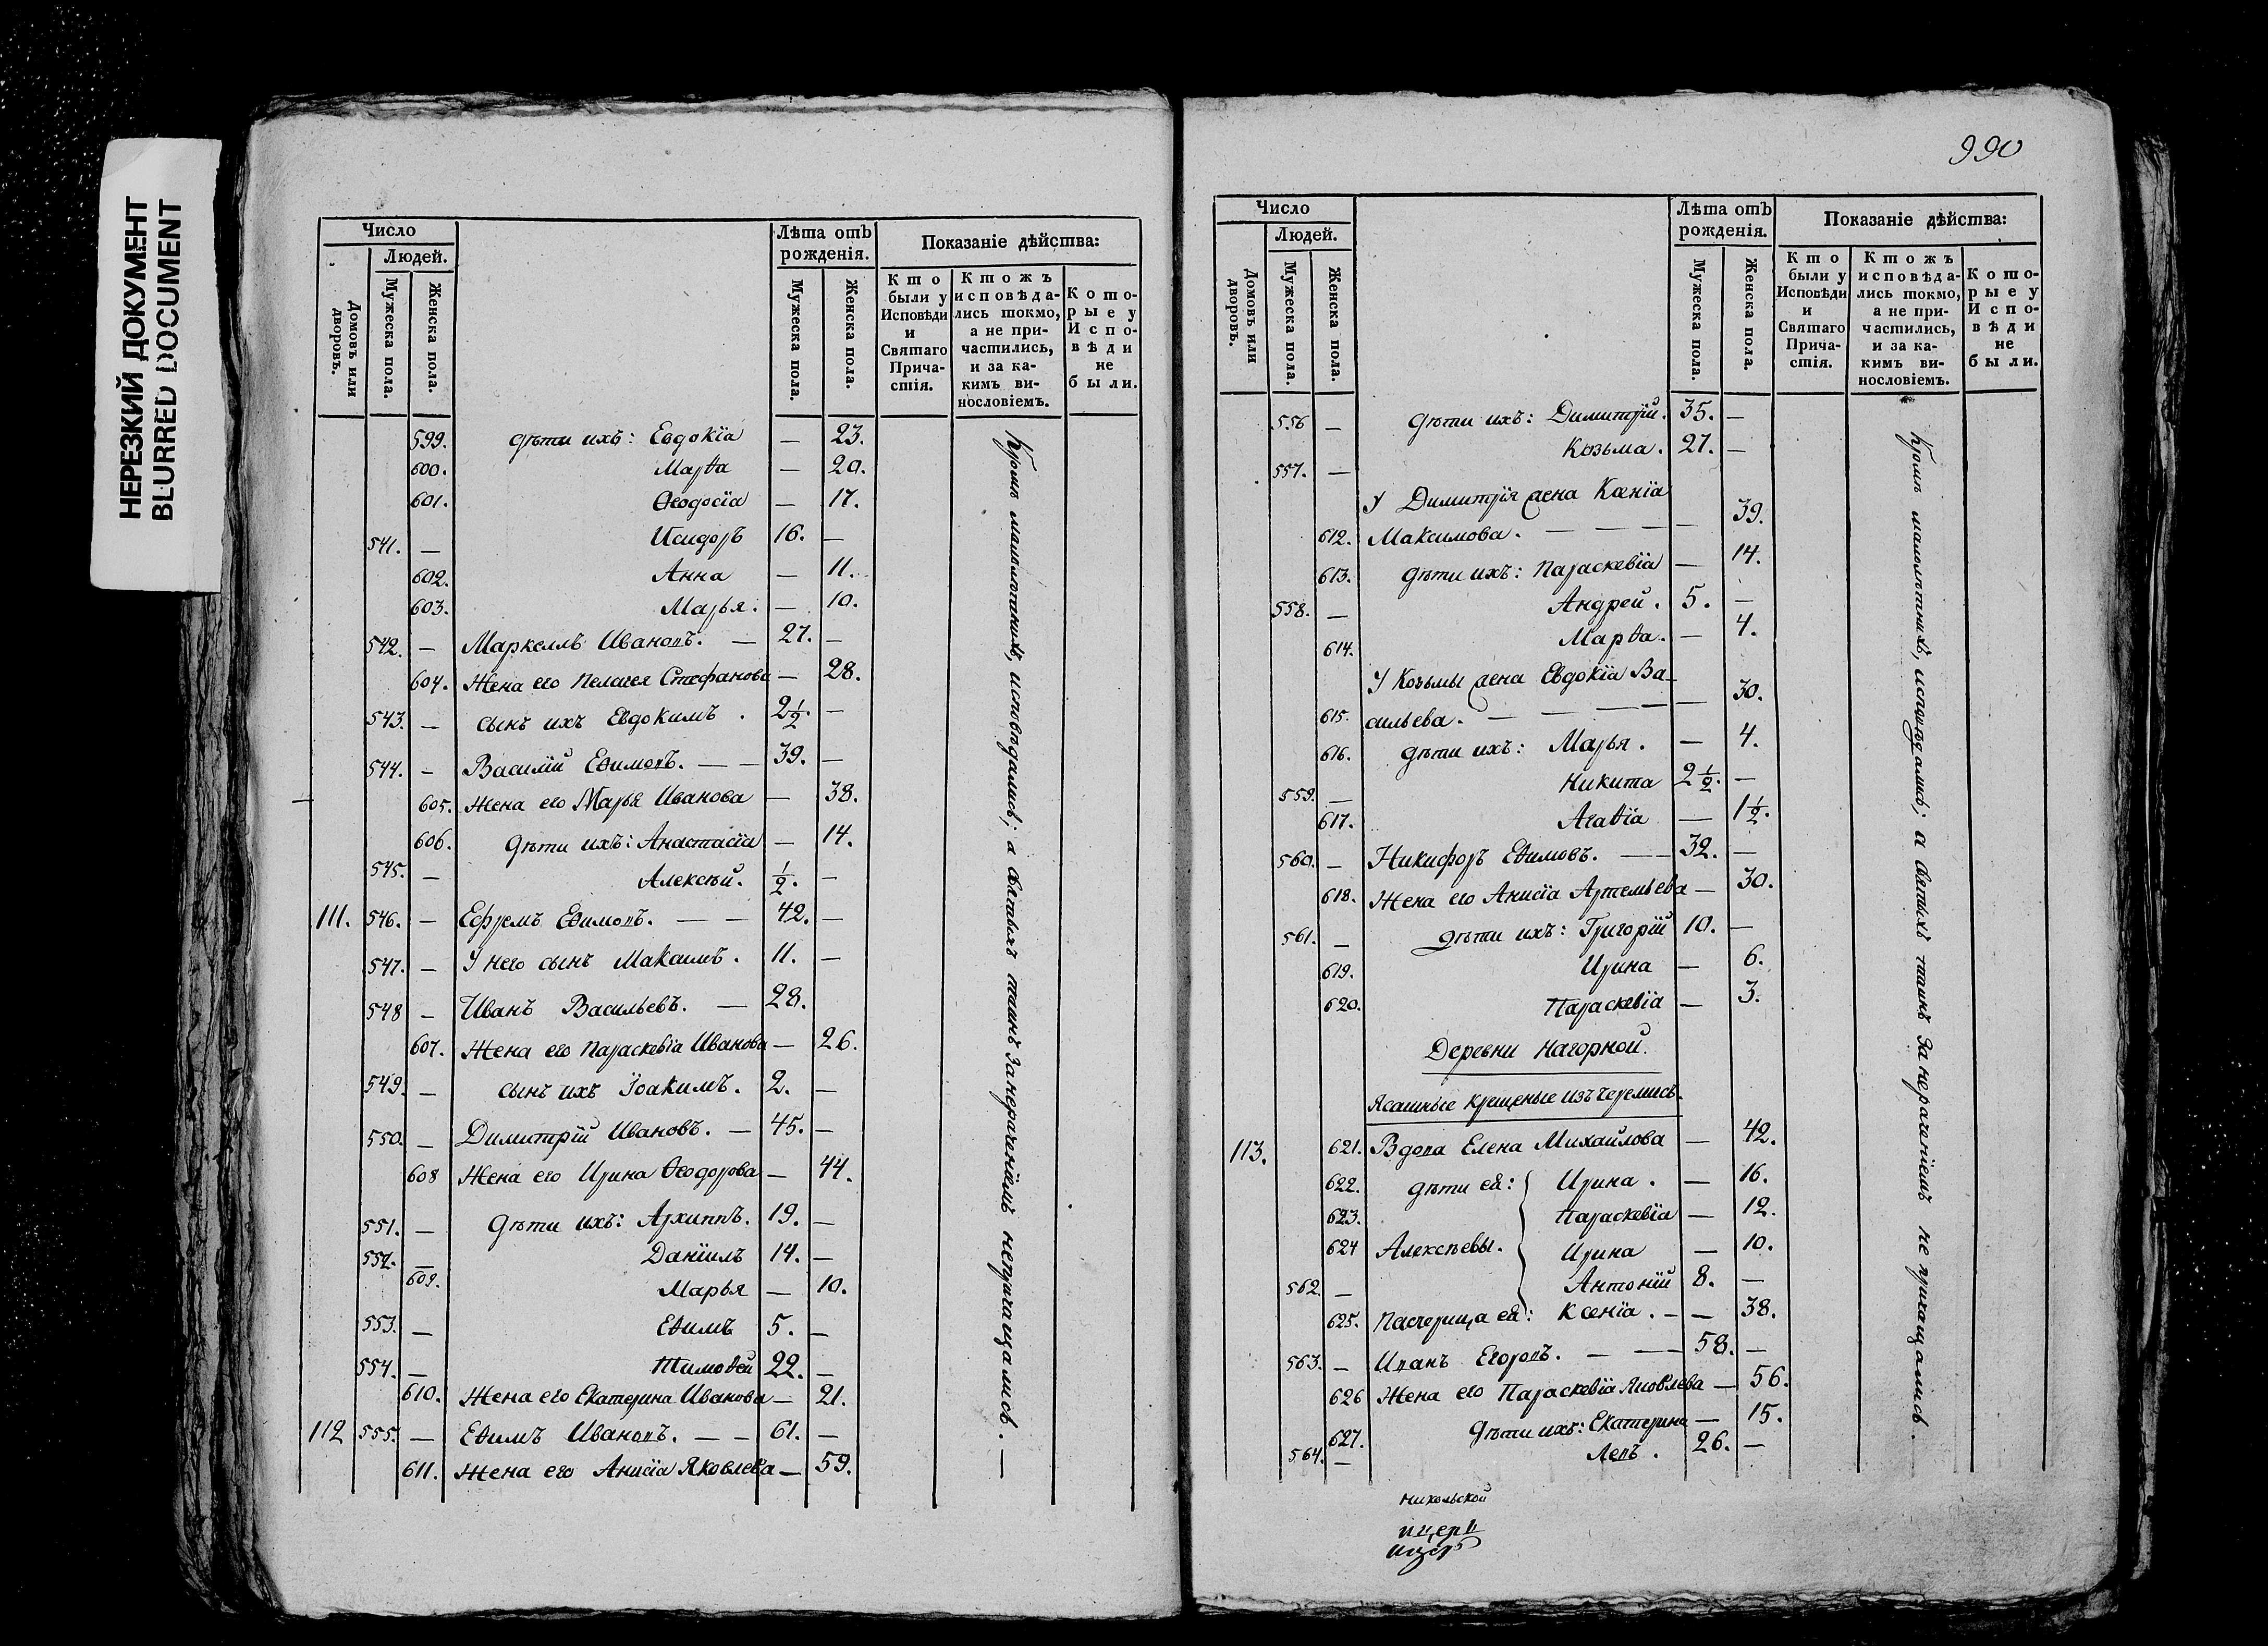 НЕРЕЗКИЙ ДОКУМЕНТ
BLURRED DOCUMENT
Число
Людей.
Домовъ или дворовъ.
Мужеска пола.
Женска пола.
Лѣта отъ рожденія.
Мужеска пола.
Женска пола.
Показаніе дѣйства:
Кто были у Исповѣди и Святаго Причастія.
Ктожъ исповѣдались токмо, а не причастились, и за какимъ винословіемъ.
Которые у Исповѣди не были.
599. дѣти ихъ: Евдокїа — 23.
600. Марѳа — 20.
601. Ѳеодосїа — 17.
541. — Исидоръ 16. —
602. Анна — 11.
603. Марья. — 10.
542. — Маркеллъ Ивановъ. — 27. —
604. Жена его Пелагея Стефанова — 28.
543. — сынъ ихъ Евдокимъ. 2½. —
544. — Василїй Еѳимовъ. — — 39. —
605. Жена его Марья Иванова — 38.
606. дѣти ихъ: Анастасїа — 14.
545. — Алексѣй. ½. —
111. 546. — Ефремъ Еѳимовъ. — — 42. —
547. — У него сынъ Максимъ. 11. —
548 — Иванъ Васильевъ. — 28.
607. Жена его Параскевїа Иванова — 26.
549. — сынъ ихъ Їоакимъ. 2. —
550. — Димитрїй Ивановъ. — 45. —
608 Жена его Ирина Ѳеодорова — 44.
551. — дѣти ихъ: Архиппъ. 19. —
552. — Данїилъ 14. —
609. Марья — 10.
553. — Еѳимъ 5. —
554. — Тимоѳей 22. —
610. Жена его Екатерина Иванова — 21.
112 555. — Еѳимъ Ивановъ. — — 61. —
611. Жена его Анисїа Яковлева — 59.
Кромѣ малолѣтнихъ, исповѣдались; а святыхъ таинъ за нераченїемъ непричащались. —
990
Число
Людей.
Домовъ или дворовъ.
Мужеска пола.
Женска пола.
Лѣта отъ рожденія.
Мужеска пола.
Женска пола.
Показаніе дѣйства:
Кто были у Исповѣди и Святаго Причастія.
Ктожъ исповѣдались токмо, а не причастились, и за какимъ винословіемъ.
Которые у Исповѣди не были.
556 — дѣти ихъ: Димитрїй. 35. —
557. — Козьма. 27. —
У Димитрїя жена Ксенїа
612. Максимова. — — — — 39.
613. дѣти ихъ: Параскевїа — 14.
558. — Андрей. 5. —
614. Марѳа. — 4.
У Козьмы жена Евдокїа Ва-
615. сильева. — — — — — 30.
616. дѣти ихъ: Марья. — 4.
559. — Никита 2½. —
617. Агаѳїа — 1½.
560. — Никифоръ Еѳимовъ. — — 32. —
618. Жена его Анисїа Артемьева — 30.
561. — дѣти ихъ: Григорїй 10. —
619. Ирина — 6.
620. Параскевїа — 3.
Деревни Нагорной.
Ясашные крещеные изъ черемисъ.
113. 621. Вдова Елена Михайлова — 42.
622. дѣти ея: Ирина. — 16.
623. Параскевїа — 12.
624 Алексѣевы. Ирина — 10.
562. — Антонїй 8. —
625. Пасчерица ея: Ксенїа. — — 38.
563. — Иванъ Егоровъ. — — — 58. —
626 Жена его Параскевїа Яковлева — 56.
627. дѣти ихъ: Екатерина — 15.
564. — Левъ. 26. —
Кромѣ малолѣтнихъ, исповѣдались; а святыхъ таинъ за нераченїемъ не причащались.
Никольской